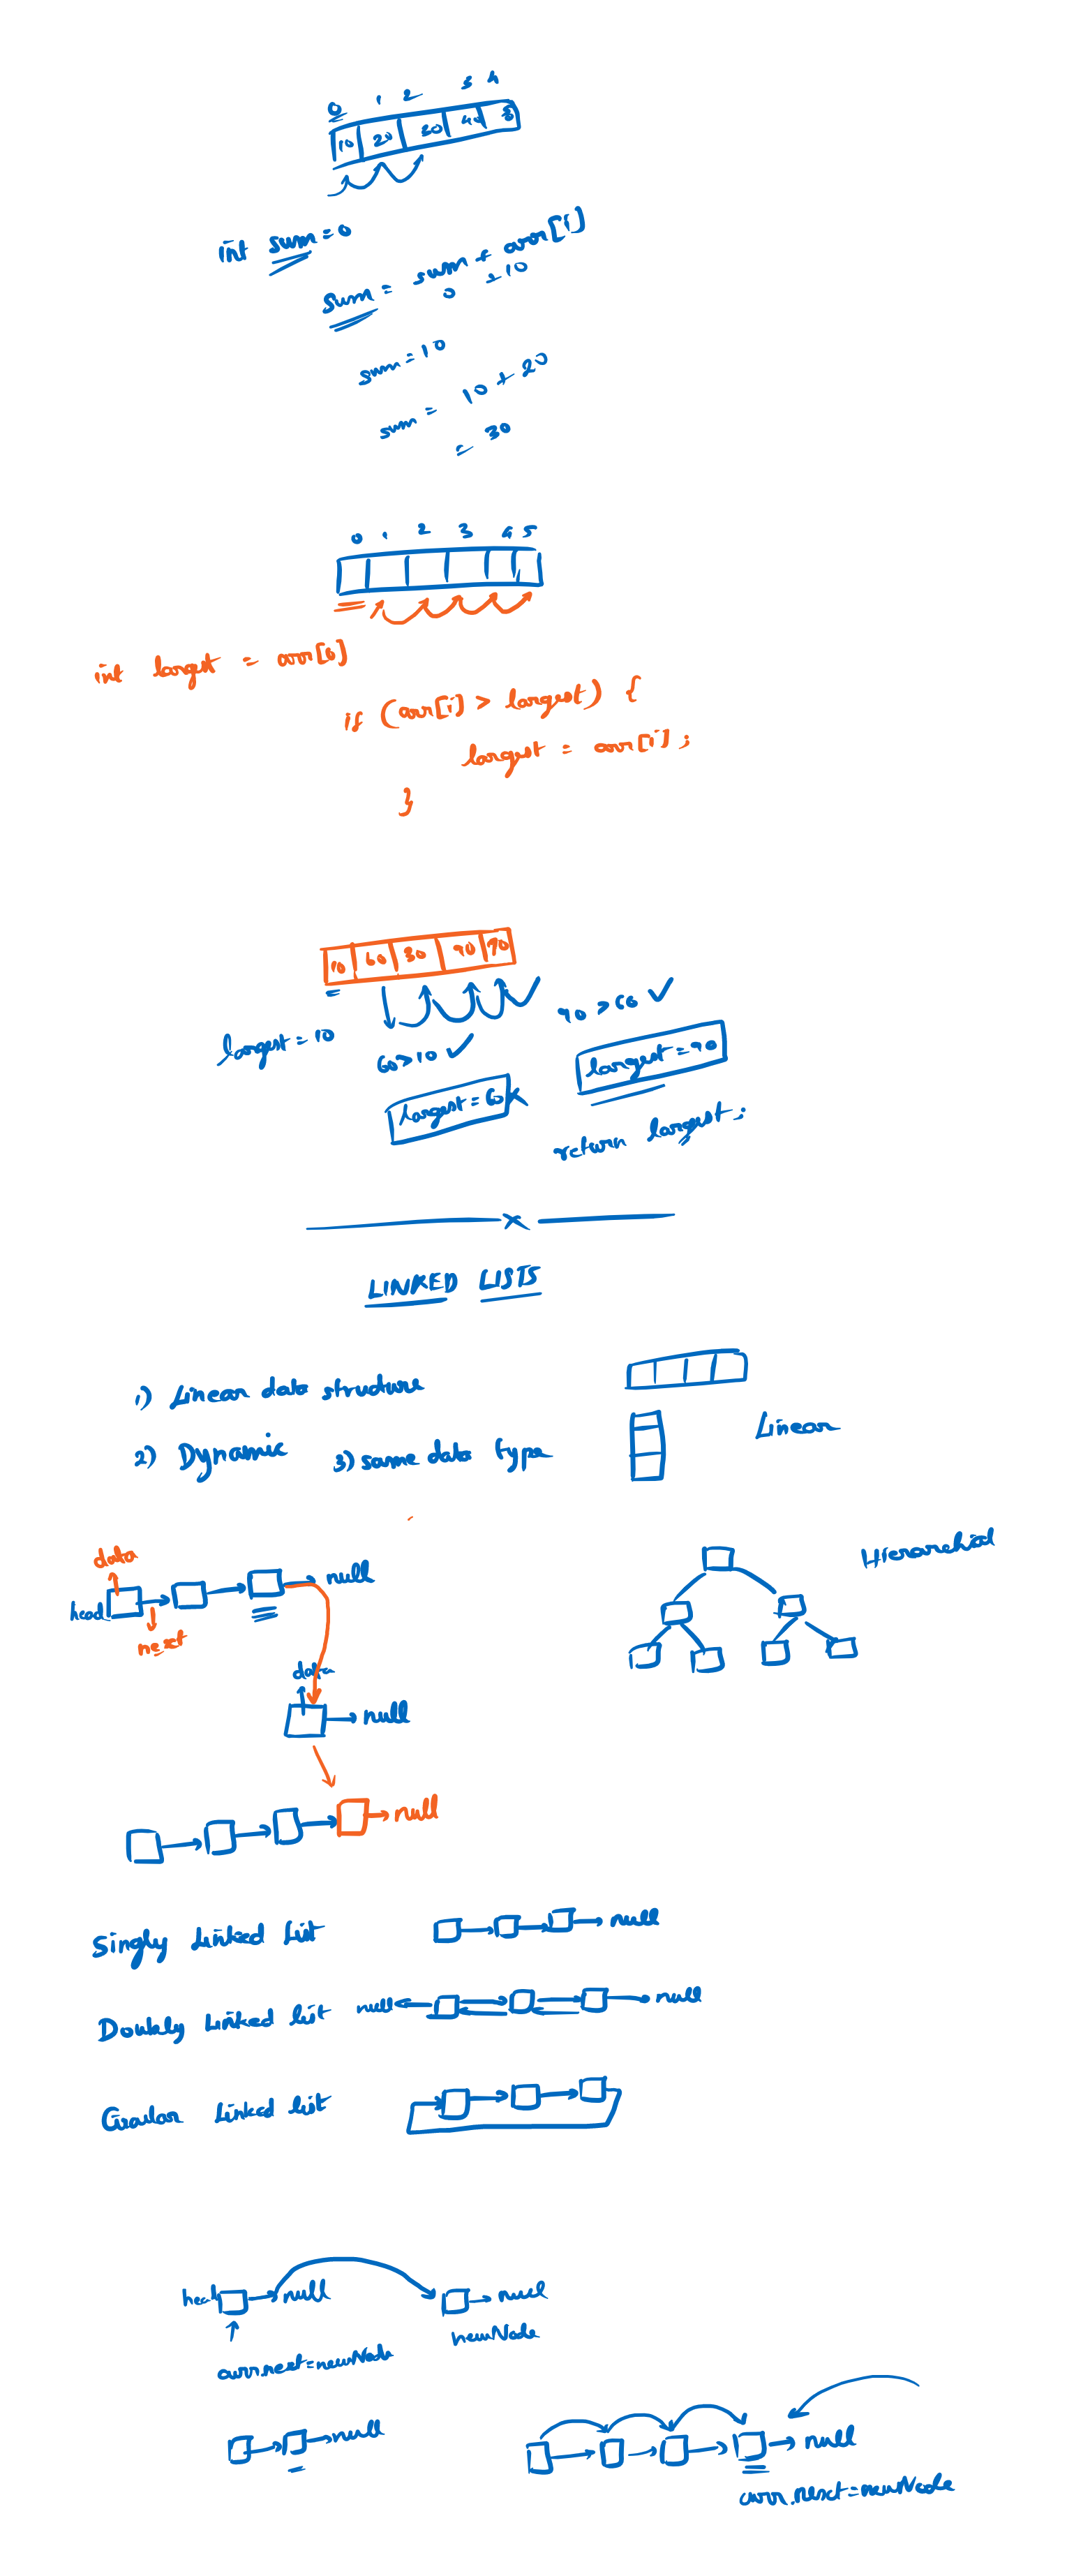 0 1 2 3 4
10 20 30 40
int sum = 0
sum = sum + arr[i]
0 + 10
sum = 10
sum = 10 + 20
= 30
0 1 2 3 4 5
int largest = arr[0]
if (arr[i] > largest) {
largest = arr[i];
}
10 60 30 90 70
largest = 10
60 > 10
largest = 60
90 > 60
largest = 90
return largest;
LINKED LISTS
1) Linear data structure
2) Dynamic 3) same data type
Linear
data
head null
next
Hierarchial
data
null
null
Singly Linked List null
Doubly Linked list null null
Circular Linked list
head null null
newNode
curr.next = newNode
null
null
curr.next = newNode